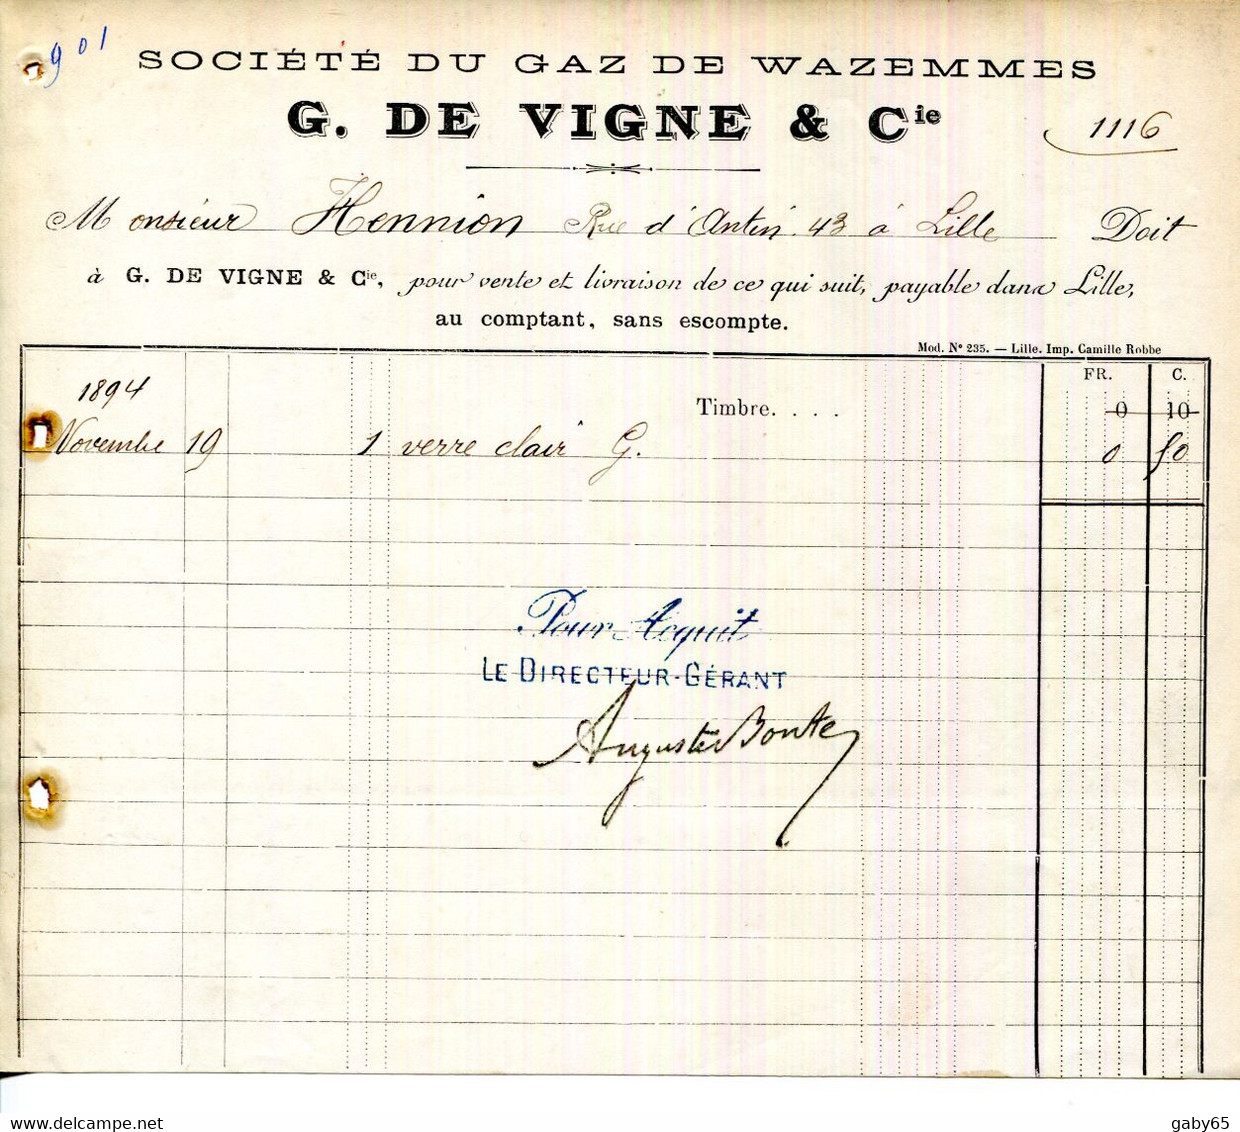 901
SOCIÉTÉ DU GAZ DE WAZEMMES
G. DE VIGNE & Cie
1116
Monsieur Hennion Rue d'Antin 43 à Lille Doit
à G. DE VIGNE & Cie, pour vente et livraison de ce qui suit, payable dans Lille,
au comptant, sans escompte.
Mod. N° 235. — Lille. Imp. Camille Robbe
FR. C.
1894
Timbre. . . . 0 10
Novembre 19 1 verre clair G. 0 50
Pour Acquit
LE DIRECTEUR-GÉRANT
Auguste Bonte
gaby65